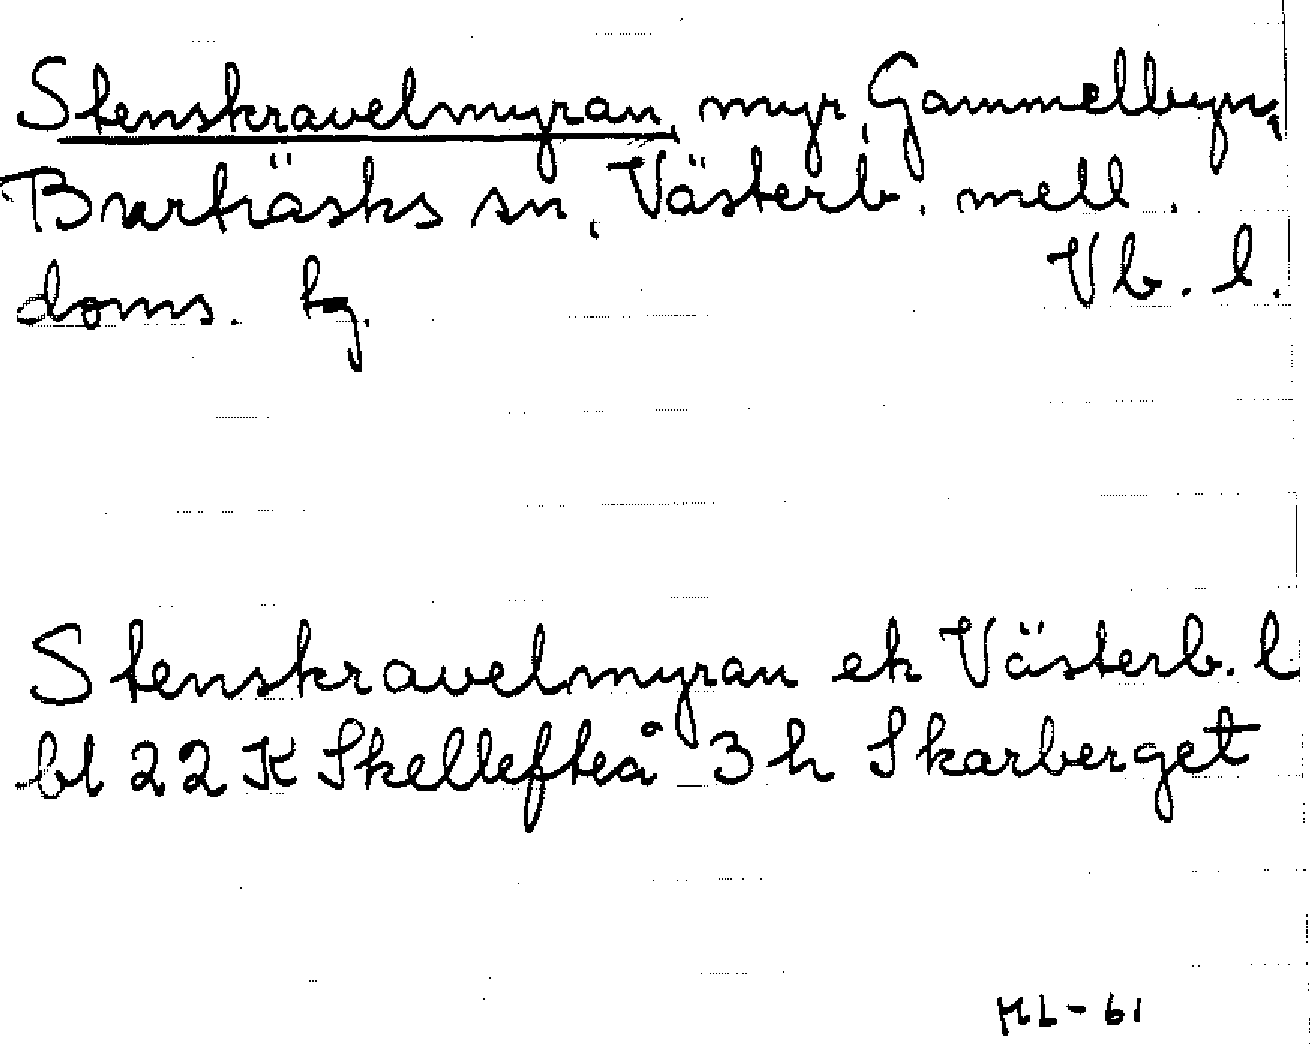 Stenskravelmyran, myr, Gammelbyn,
Burträsks sn, Västerb. mell.
doms. tg. Vb. l.
Stenskravelmyran ek Västerb. l
bl 22 K Skellefteå 3 h Skarberget
ML-61